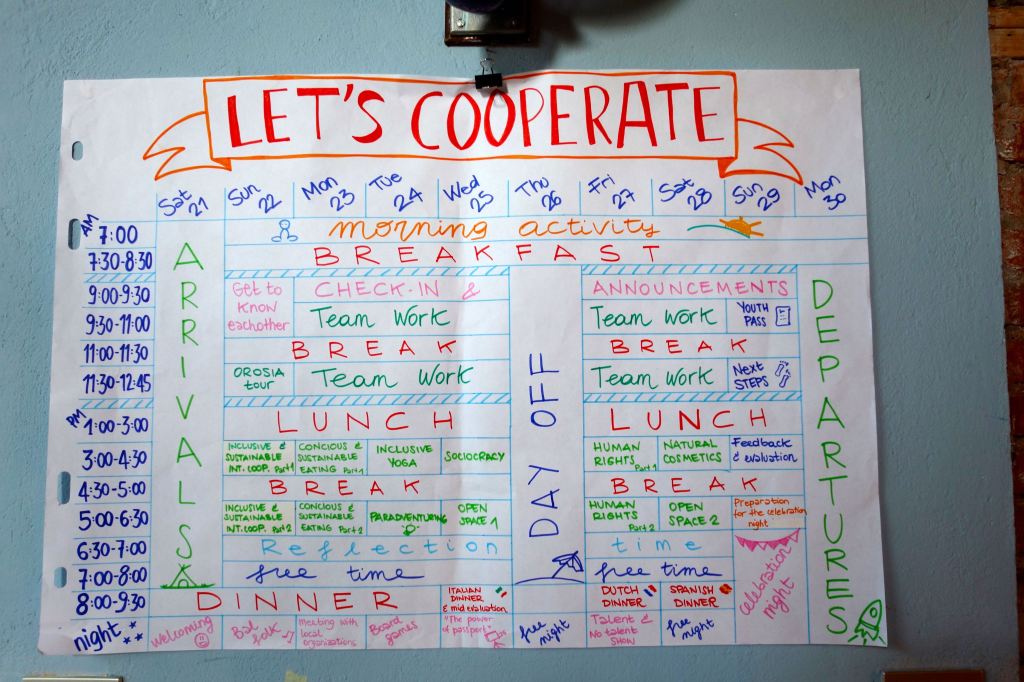 LET'S COOPERATE
Sat 21 Sun 22 Mon 23 Tue 24 Wed 25 Thu 26 Fri 27 Sat 28 Sun 29 Mon 30
AM
7:00 morning activity
7:30-8:30 BREAKFAST
ARRIVALS
DAY OFF
DEPARTURES
9:00-9:30 Get to know eachother CHECK-IN & ANNOUNCEMENTS
9:30-11:00 Team Work Team Work YOUTH PASS
11:00-11:30 BREAK BREAK
11:30-12:45 OROSIA tour Team Work Team Work Next STEPS
PM
1:00-3:00 LUNCH LUNCH
3:00-4:30 INCLUSIVE & SUSTAINABLE INT. COOP. Part 1 CONCIOUS & SUSTAINABLE EATING Part 1 INCLUSIVE YOGA SOCIOCRACY HUMAN RIGHTS Part 1 NATURAL COSMETICS Feedback & evaluation
4:30-5:00 BREAK BREAK
5:00-6:30 INCLUSIVE & SUSTAINABLE INT. COOP. Part 2 CONCIOUS & SUSTAINABLE EATING Part 2 PARADVENTURING OPEN SPACE 1 HUMAN RIGHTS Part 2 OPEN SPACE 2 Preparation for the celebration night
6:30-7:00 Reflection time
7:00-8:00 free time free time
celebration night
8:00-9:30 DINNER ITALIAN DINNER & mid evaluation DUTCH DINNER SPANISH DINNER
night Welcoming Bal folk Meeting with local organizations Board games "The power of passport" free night Talent & No talent SHOW free night